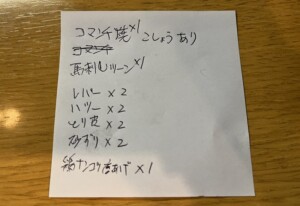 コマンチ焼×1 こしょうあり
コマンチ
馬刺しツーン×1
レバー×2
ハツ×2
とり皮×2
砂ずり×2
鶏ナンコツ唐あげ×1